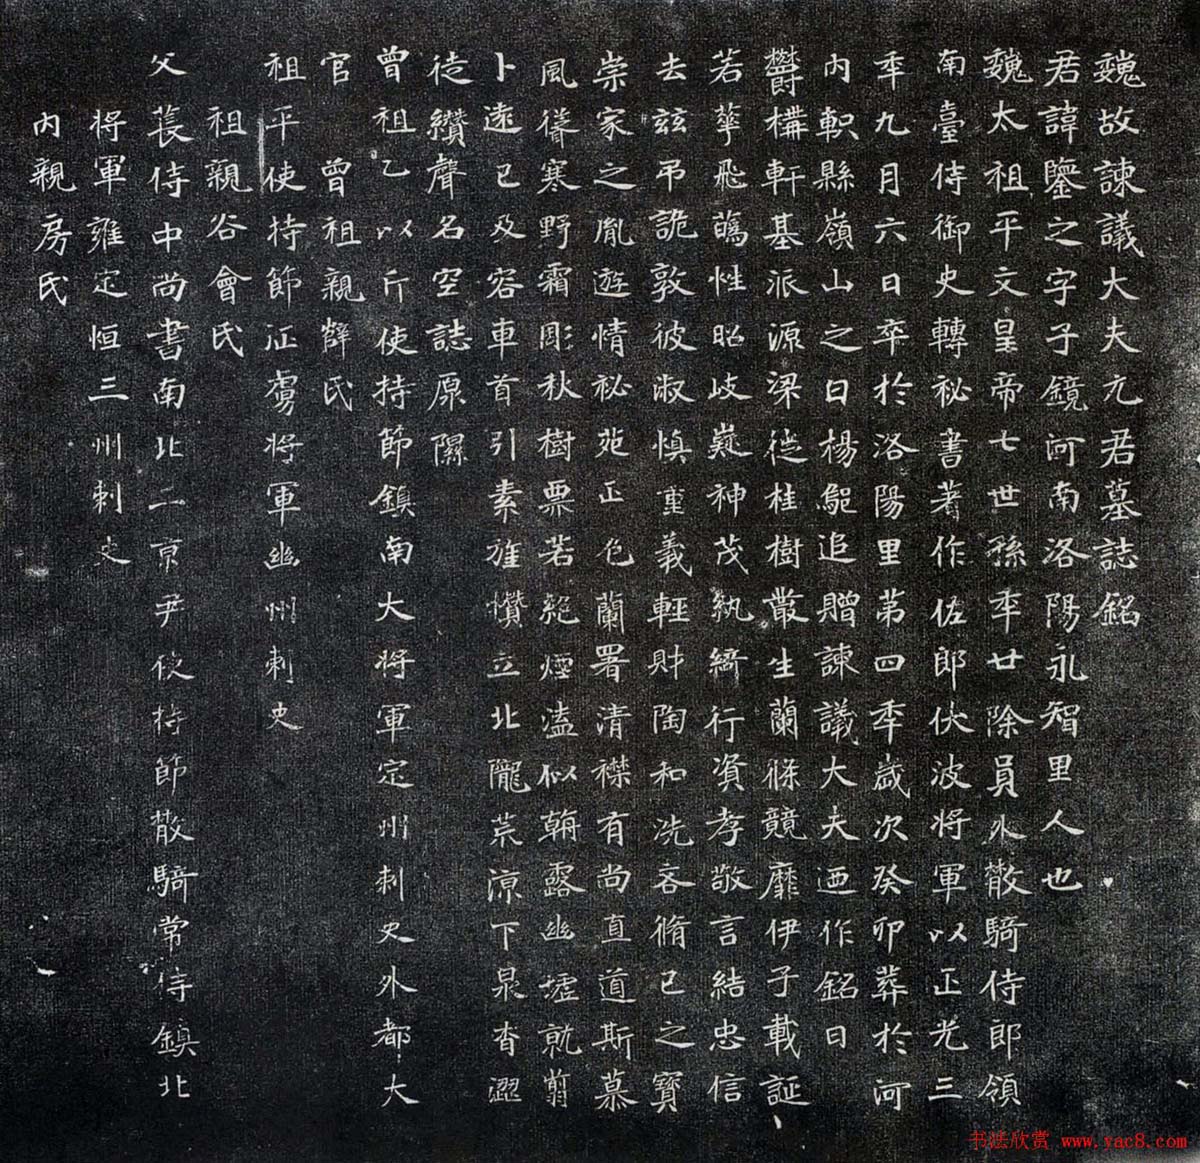 魏故諫議大夫元君墓誌銘
君諱鑒之字子鏡河南洛陽永智里人也
魏太祖平文皇帝七世孫年廿除員外散騎侍郎領
南臺侍御史轉祕書著作佐郎伏波將軍以正光三
年九月六日卒於洛陽里第四年歲次癸卯葬於河
內軹縣嶺山之日楊駞追贈諫議大夫迺作銘曰
鬱構軒基派源梁徙桂樹叢生蘭條競靡伊子載誕
若華飛蘤性昭岐嶷神茂紈綺行資孝敬言結忠信
去茲弔詭敦彼淑慎重義輕財陶和洗吝脩己之寶
崇家之胤遊情祕苑正色蘭署清襟有尚直道斯慕
風㝵寒野霜彫秋樹票若絕煙溘似朝露幽墟就翦
卜遠已及容車首引素旌櫕立北隴荒涼下泉杳澀
徒纘聲名空誌原隰
曾祖乙以斤使持節鎮南大將軍定州刺史外都大
官 曾祖親薛氏
祖平使持節征虜將軍幽州刺史
祖親谷會氏
父萇侍中尚書南北二京尹使持節散騎常侍鎮北
將軍雍定恒三州刺史
內親房氏
书法欣赏 www.yac8.com